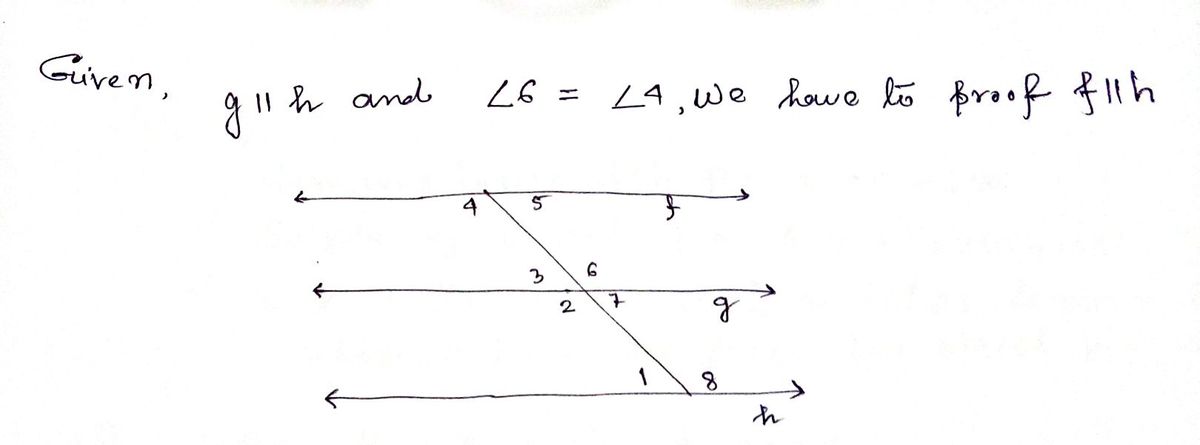 Given,
g || h and ∠6 = ∠4, We have to proof f || h
4 5 f
3 6
2 7 g
1 8
h